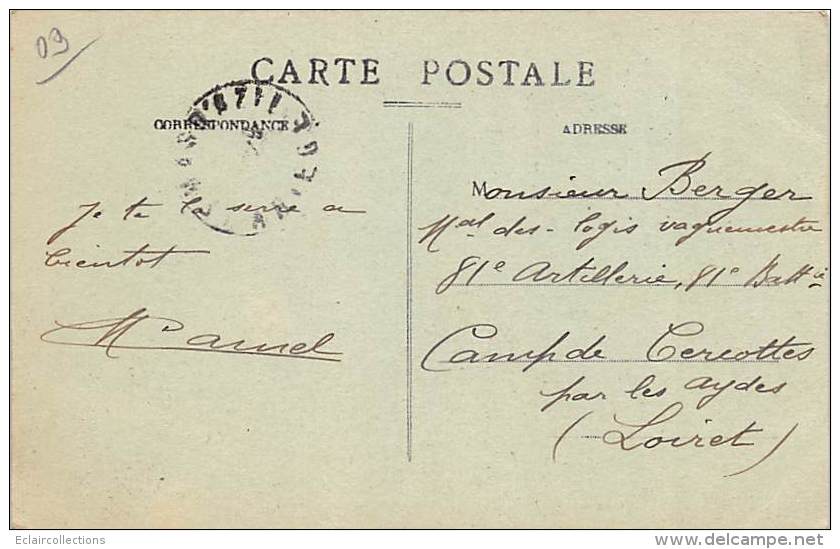 09
CARTE POSTALE
CORRESPONDANCE
ADRESSE
Je te la serre a
bientot
Monsieur Berger
Mal des-logis vaguemestre
81e Artillerie, 81e Battie
Camp de Cercottes
par les aydes
(Loiret)
Eclaircollections
http://www.delcampe.net